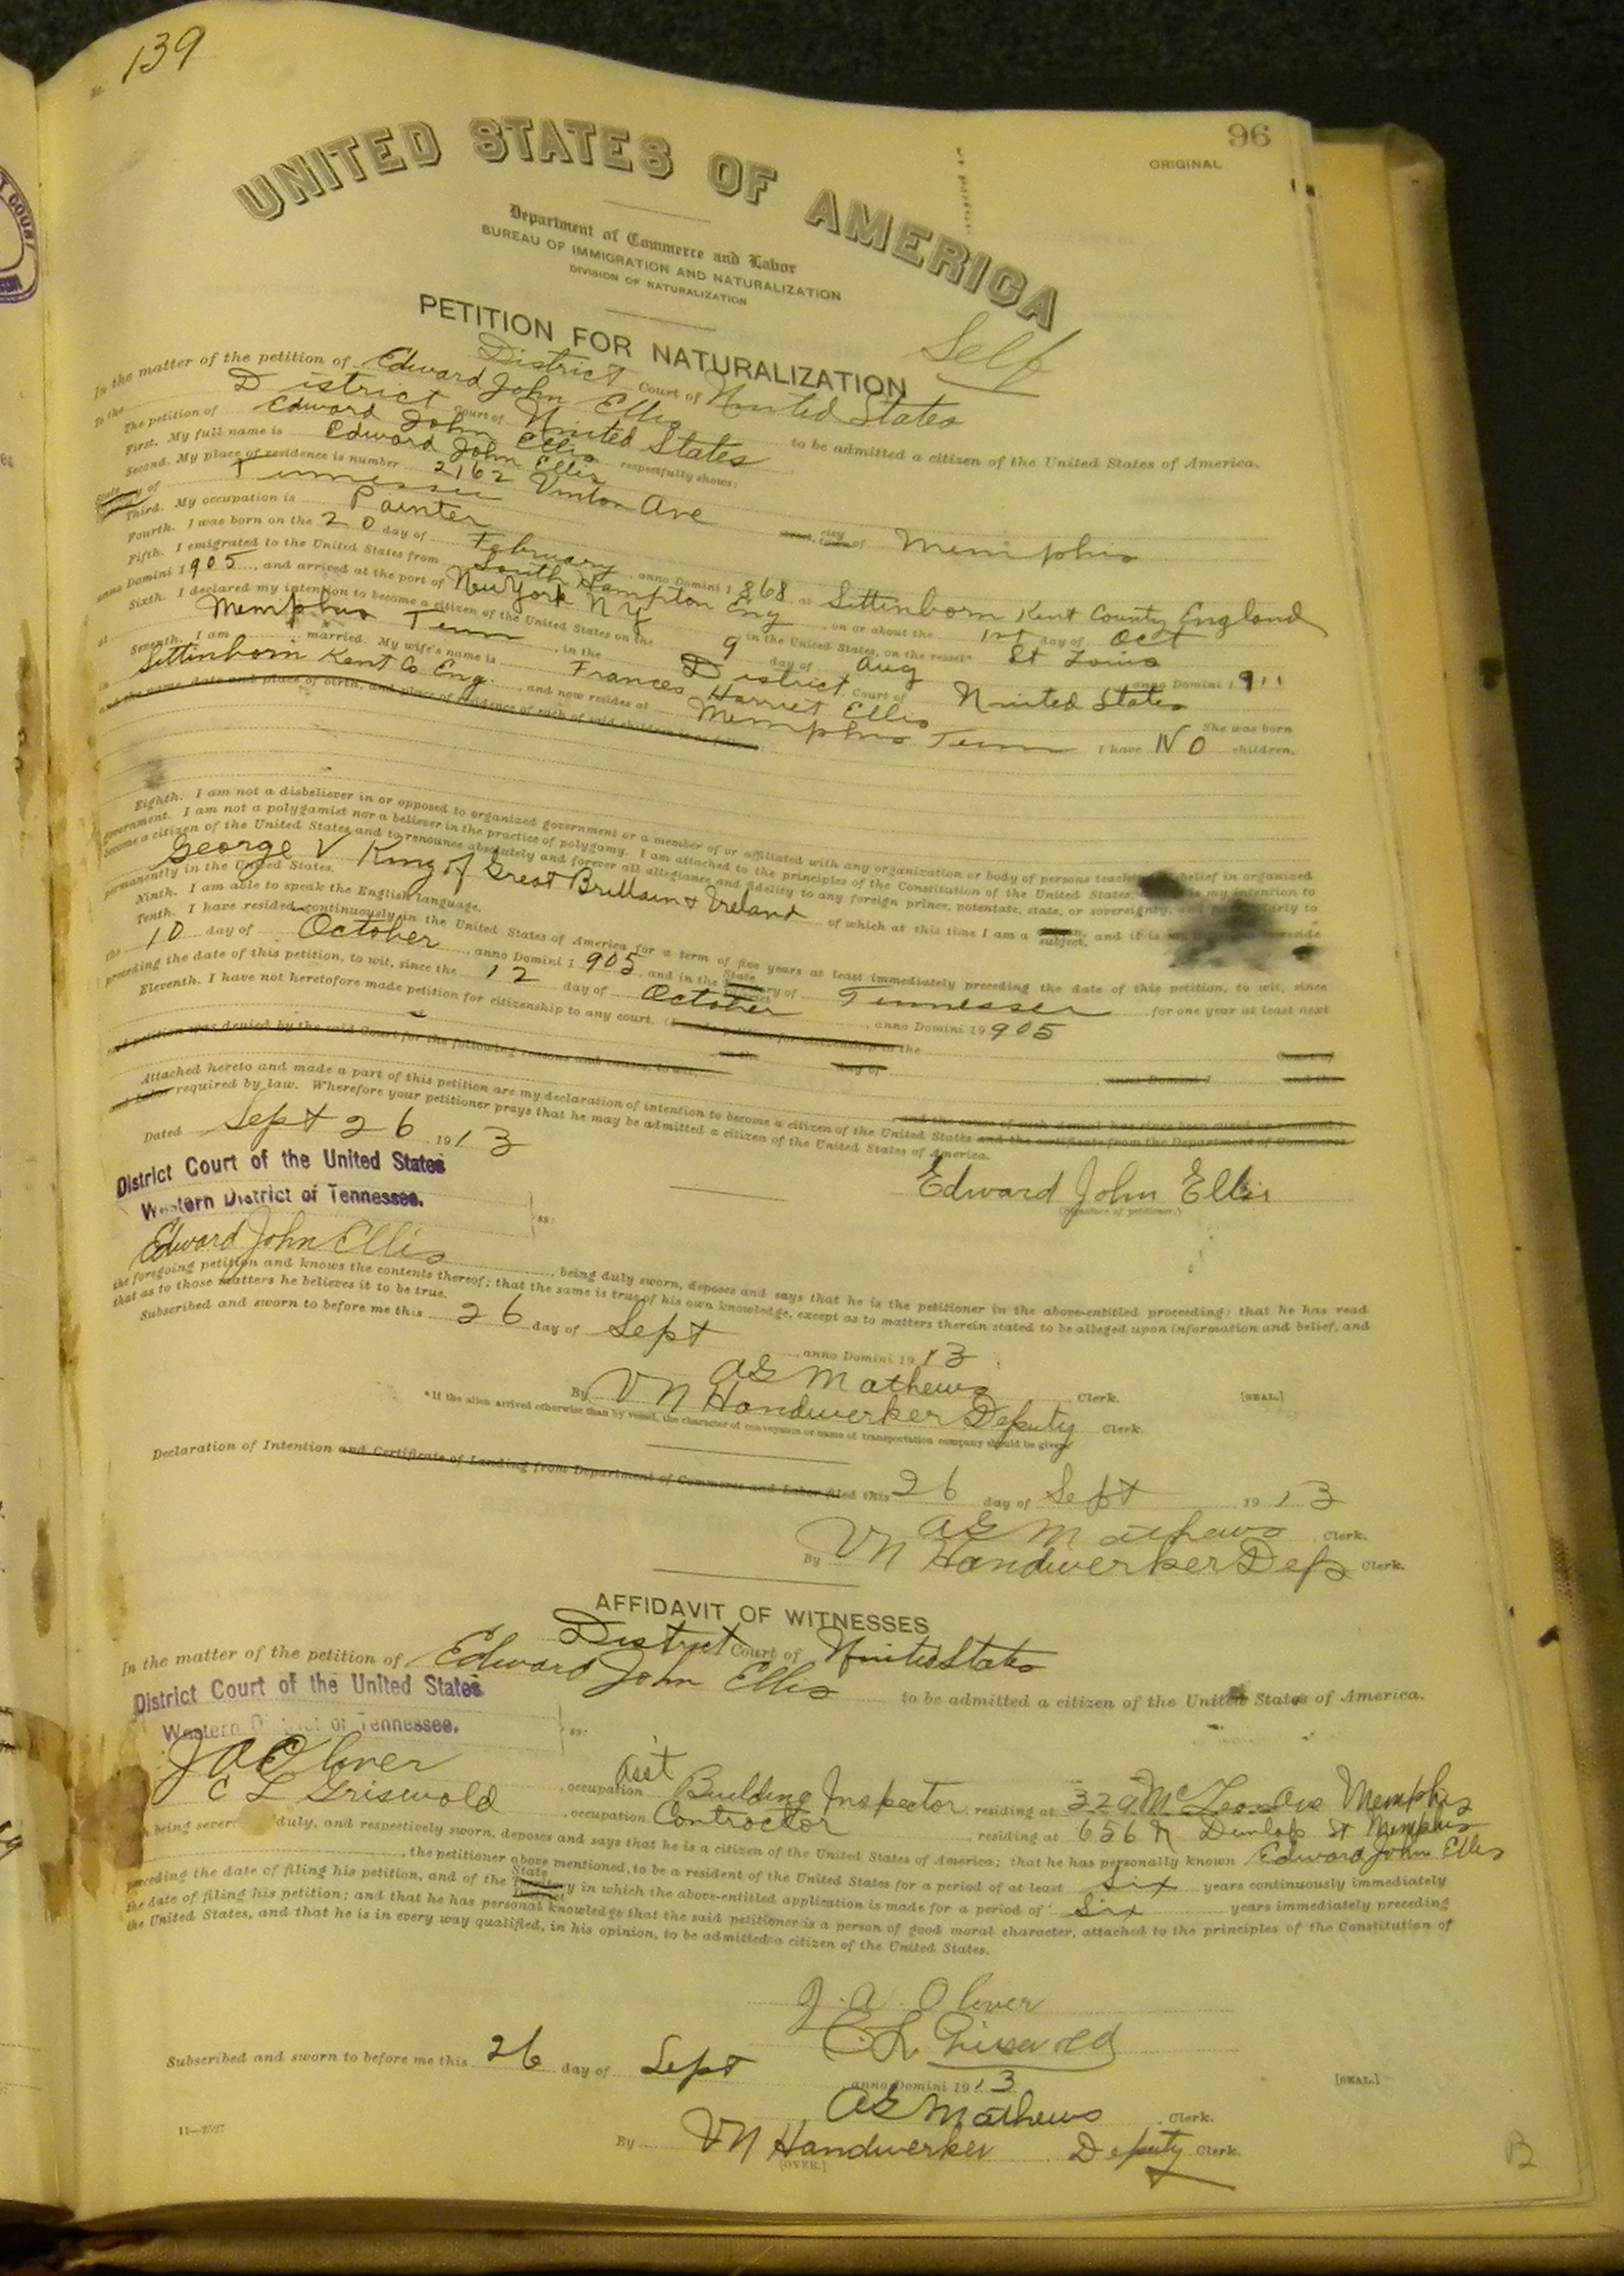 No. 139
96
ORIGINAL
UNITED STATES OF AMERICA
Department of Commerce and Labor
BUREAU OF IMMIGRATION AND NATURALIZATION
DIVISION OF NATURALIZATION
PETITION FOR NATURALIZATION
Self
District Court of United States
In the matter of the petition of Edward John Ellis to be admitted a citizen of the United States of America.
To the District Court of United States
The petition of Edward John Ellis respectfully shows:
First. My full name is Edward John Ellis
Second. My place of residence is number 2162 Vinton Ave city of Memphis
State of Tennessee
Third. My occupation is Painter
Fourth. I was born on the 20 day of February, anno Domini 1868 at Sittinborn Kent County England
Fifth. I emigrated to the United States from South Hampton Eng, on or about the 1st day of Oct
anno Domini 1905, and arrived at the port of New York N Y in the United States, on the vessel* St Louis
Sixth. I declared my intention to become a citizen of the United States on the 9 day of Aug anno Domini 1911
at Memphis Tenn, in the District Court of United States
Seventh. I am married. My wife's name is Frances Harriet Ellis She was born
in Sittinborn Kent Co Eng. and now resides at Memphis Tenn I have NO children,
and the name, date and place of birth, and place of residence of each of said children is as follows
Eighth. I am not a disbeliever in or opposed to organized government or a member of or affiliated with any organization or body of persons teaching belief in organized
government. I am not a polygamist nor a believer in the practice of polygamy. I am attached to the principles of the Constitution of the United States, is my intention to
become a citizen of the United States and to renounce absolutely and forever all allegiance and fidelity to any foreign prince, potentate, state, or sovereignty, and
George V King of Great Brittain & Ireland of which at this time I am a subject, and it is
permanently in the United States.
Ninth. I am able to speak the English language.
Tenth. I have resided continuously in the United States of America for a term of five years at least immediately preceding the date of this petition, to wit, since
the 10 day of October, anno Domini 1905 and in the State of Tennessee for one year at least next
preceding the date of this petition, to wit, since the 12 day of October, anno Domini 1905
Eleventh. I have not heretofore made petition for citizenship to any court. (I made petition for citizenship to the Court of
in the day of anno Domini 1 and the
said petition was denied by the said Court for the following reasons and causes, to wit,
and the cause of such denial has since been cured or removed.)
Attached hereto and made a part of this petition are my declaration of intention to become a citizen of the United States and the certificate from the Department of Commerce
and Labor required by law. Wherefore your petitioner prays that he may be admitted a citizen of the United States of America.
Dated Sept 26 1913
Edward John Ellis
(Signature of petitioner.)
District Court of the United States
Western District of Tennessee. ss:
Edward John Ellis, being duly sworn, deposes and says that he is the petitioner in the above-entitled proceeding; that he has read
the foregoing petition and knows the contents thereof; that the same is true of his own knowledge, except as to matters therein stated to be alleged upon information and belief, and
that as to those matters he believes it to be true.
Subscribed and sworn to before me this 26 day of Sept, anno Domini 1913
A G Mathews Clerk. [SEAL.]
By V N Handwerker Deputy Clerk.
*If the alien arrived otherwise than by vessel, the character of conveyance or name of transportation company should be given.
Declaration of Intention and Certificate of Landing from Department of Commerce and Labor filed this 26 day of Sept 1913
A G Mathews Clerk.
By V N Handwerker Dep Clerk.
AFFIDAVIT OF WITNESSES
District Court of United States
In the matter of the petition of Edward John Ellis to be admitted a citizen of the United States of America.
District Court of the United States
Western District of Tennessee. ss:
J A Oliver, occupation Asst Building Inspector, residing at 329 McLean Ave Memphis
C L Griswold, occupation Contractor, residing at 656 N Dunlap St Memphis
being duly, and respectively sworn, deposes and says that he is a citizen of the United States of America; that he has personally known Edward John Ellis
, the petitioner above mentioned, to be a resident of the United States for a period of at least Six years continuously immediately
preceding the date of filing his petition, and of the State Territory District in which the above-entitled application is made for a period of Six years immediately preceding
the date of filing his petition; and that he has personal knowledge that the said petitioner is a person of good moral character, attached to the principles of the Constitution of
the United States, and that he is in every way qualified, in his opinion, to be admitted a citizen of the United States.
J. A. Oliver
C. L. Griswold
Subscribed and sworn to before me this 26 day of Sept, anno Domini 1913 [SEAL.]
A G Mathews, Clerk.
By V N Handwerker Deputy Clerk.
[OVER.]
B